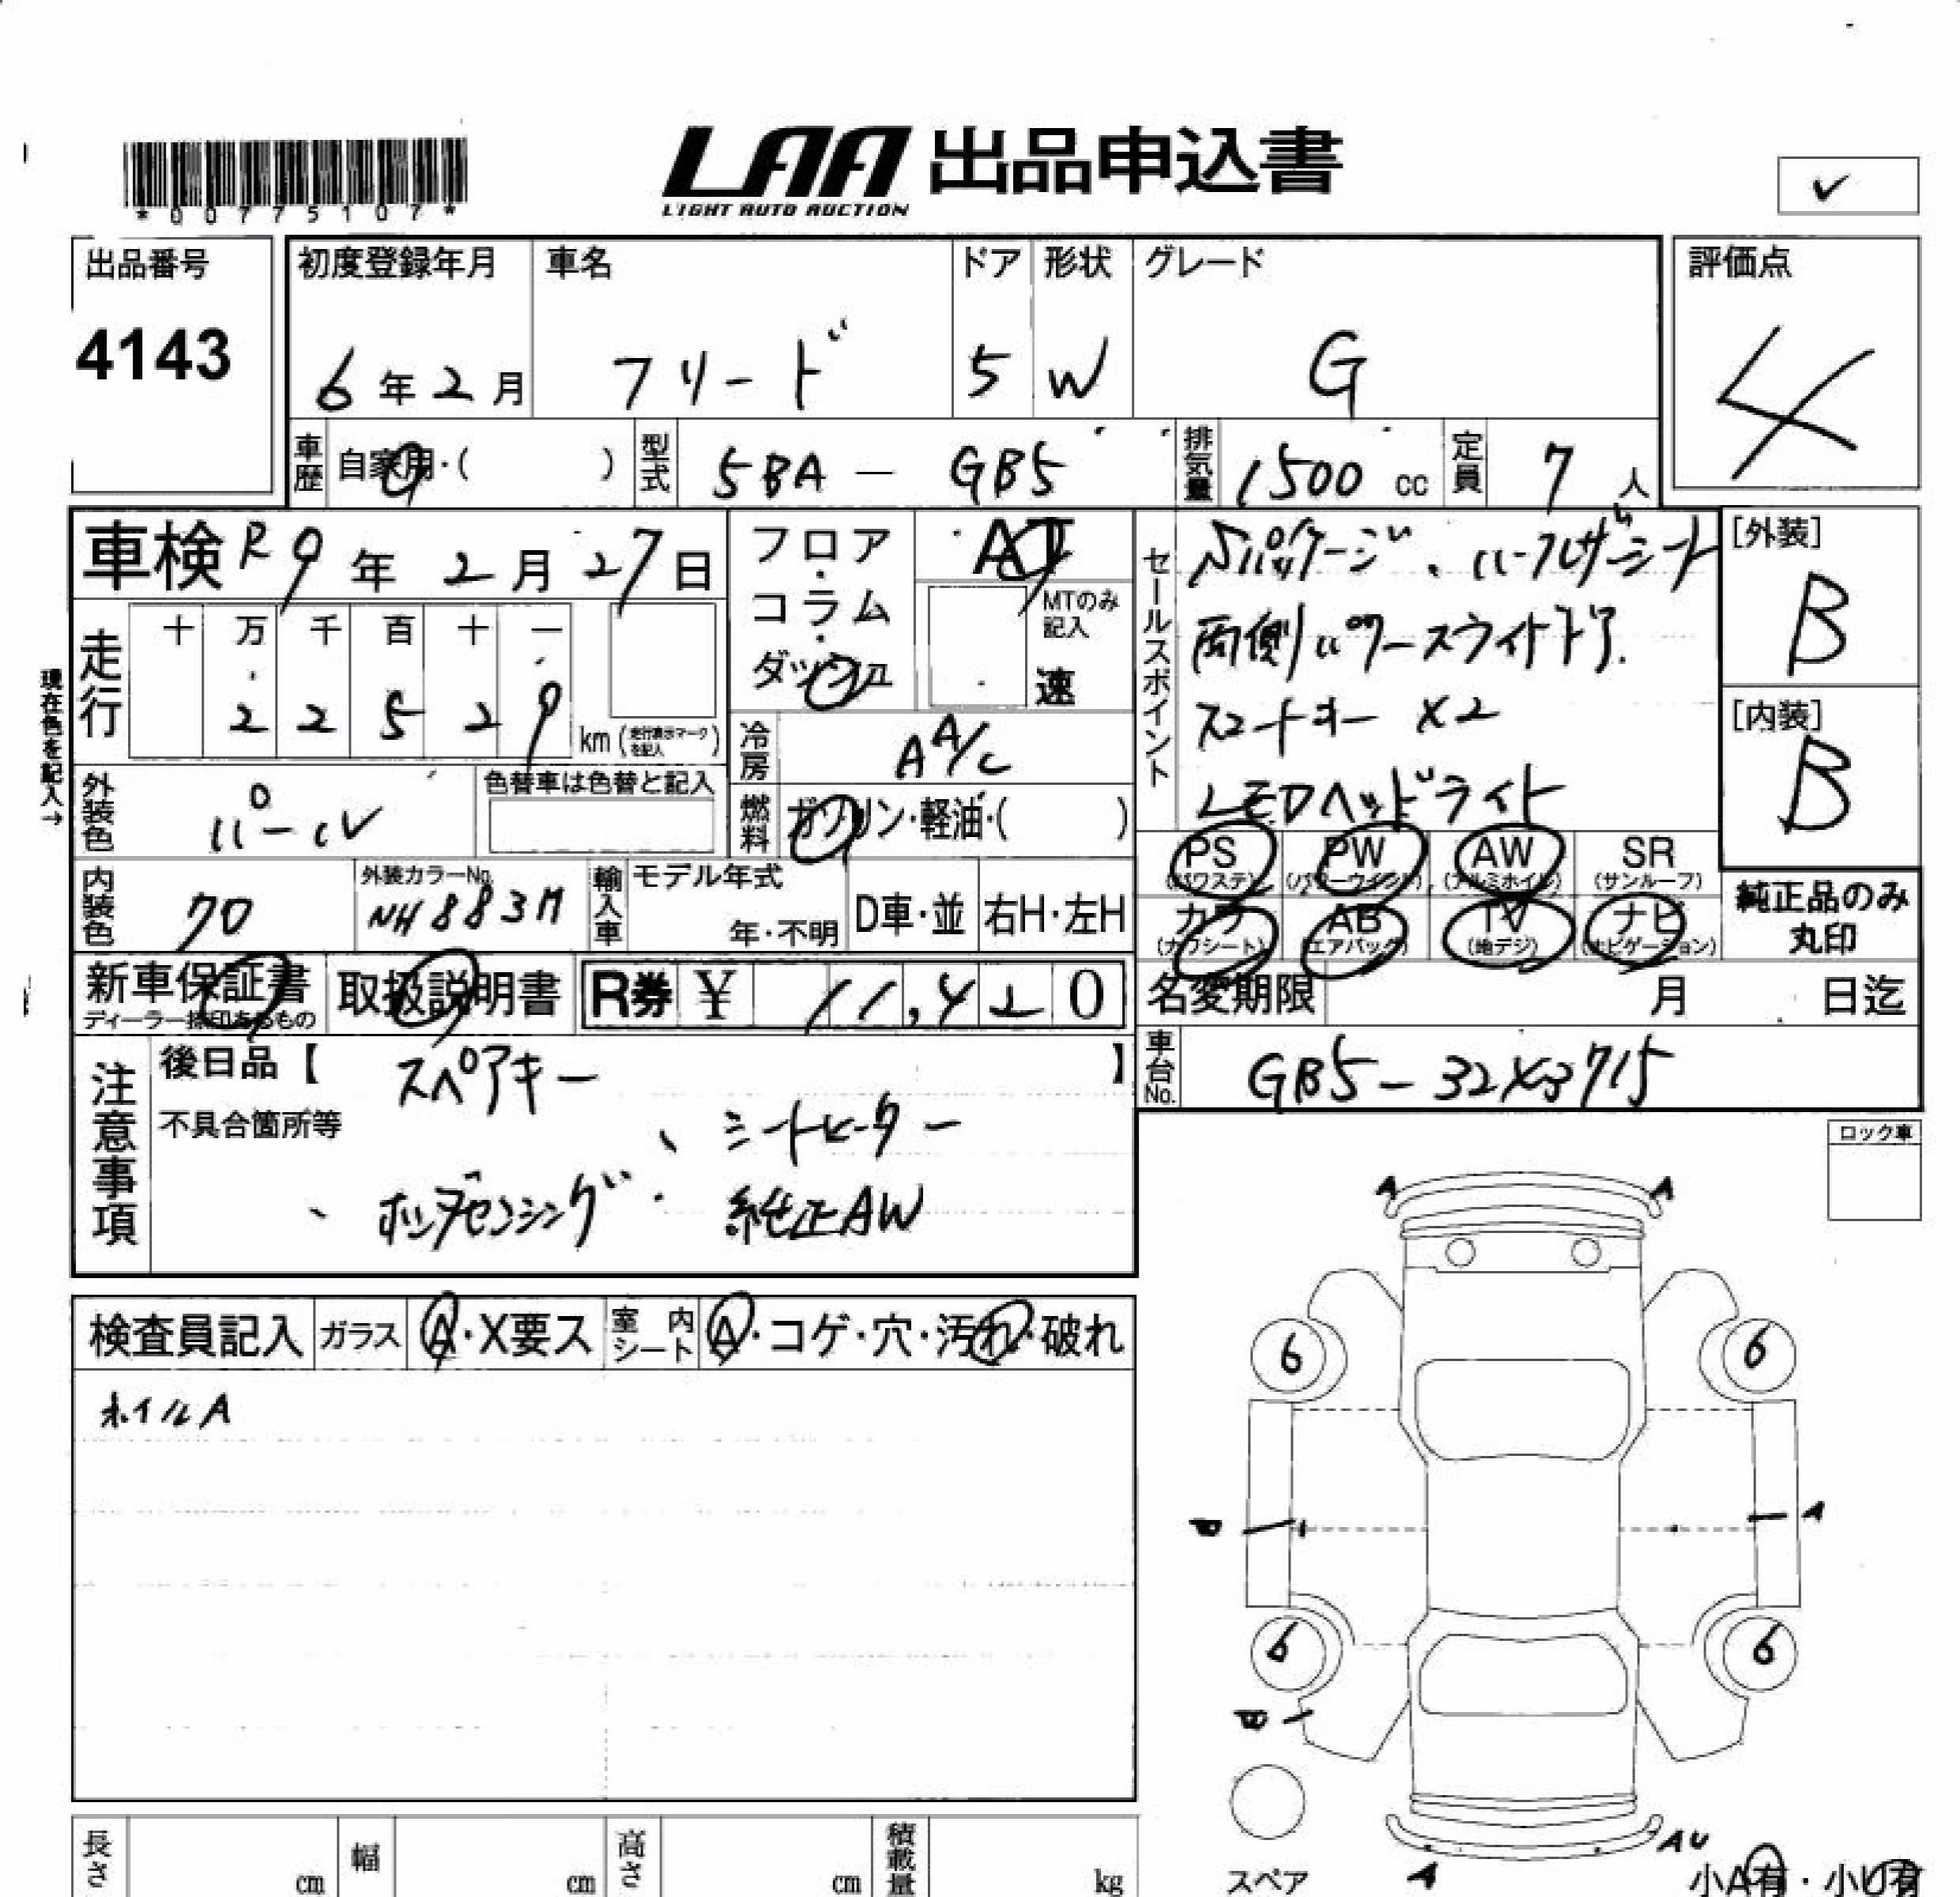 *00775107*
LAA 出品申込書
LIGHT AUTO AUCTION
✓
出品番号
4143
初度登録年月
6年2月
車名
フリード
ドア
5
形状
W
グレード
G
評価点
4
車歴 自家用・( )
型式 5BA - GB5
排気量 1500 cc
定員 7人
車検 R9年2月27日
走行
十 万 千 百 十 一
2 2 5 2 9
km(走行表示マークを記入)
現在色を記入→
外装色 パール
色替車は色替と記入
内装色 70
外装カラーNo. NH883M
フロア・コラム・ダッシュ
AT
MTのみ記入
速
冷房 AA/C
燃料 ガソリン・軽油・( )
輸入車 モデル年式
年・不明
D車・並 右H・左H
セールスポイント
Sパッケージ、ハーフレザーシート
両側パワースライドドア.
スマートキー X2
LEDヘッドライト
[外装]
B
[内装]
B
PS (パワステ) PW (パワーウインド) AW (アルミホイル) SR (サンルーフ)
カワ (カワシート) AB (エアバッグ) TV (地デジ) ナビ (ナビゲーション)
純正品のみ丸印
新車保証書
ディーラー捺印あるもの
取扱説明書
R券 ¥ 11,420
名変期限 月 日迄
車台No. GB5-32X3715
注意事項
後日品【 スペアキー 】
不具合箇所等
、シートヒーター
、ホンダセンシング . 純正AW
ロック車
検査員記入 ガラス A・X要ス 室内シート A・コゲ・穴・汚れ・破れ
ホイルA
A A
6 6
B A
6 6
B
スペア
A AU
小A有・小U有
長さ cm 幅 cm 高さ cm 積載量 kg